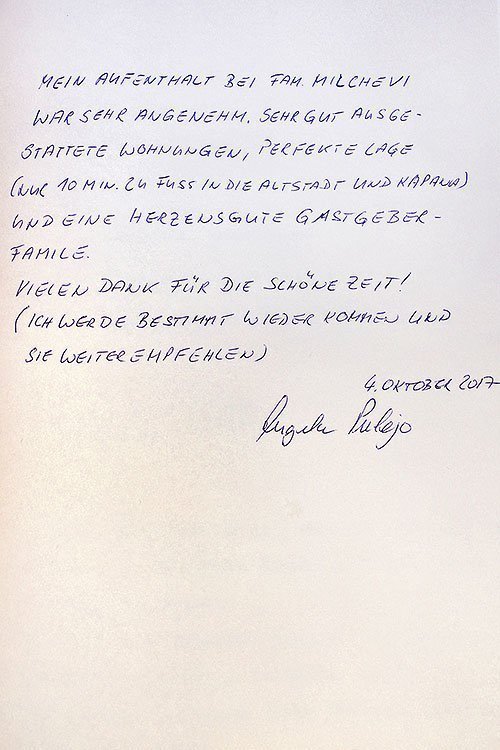 MEIN AUFENTHALT BEI FAM. MILCHEVI
WAR SEHR ANGENEHM. SEHR GUT AUSGE-
STATTETE WOHNUNGEN, PERFEKTE LAGE
(NUR 10 MIN. ZU FUSS IN DIE ALTSTADT UND KAPANA)
UND EINE HERZENSGUTE GASTGEBER-
FAMILE.
VIELEN DANK FÜR DIE SCHÖNE ZEIT!
(ICH WERDE BESTIMMT WIEDER KOMMEN UND
SIE WEITEREMPFEHLEN)
4. OKTOBER 2017
Angela